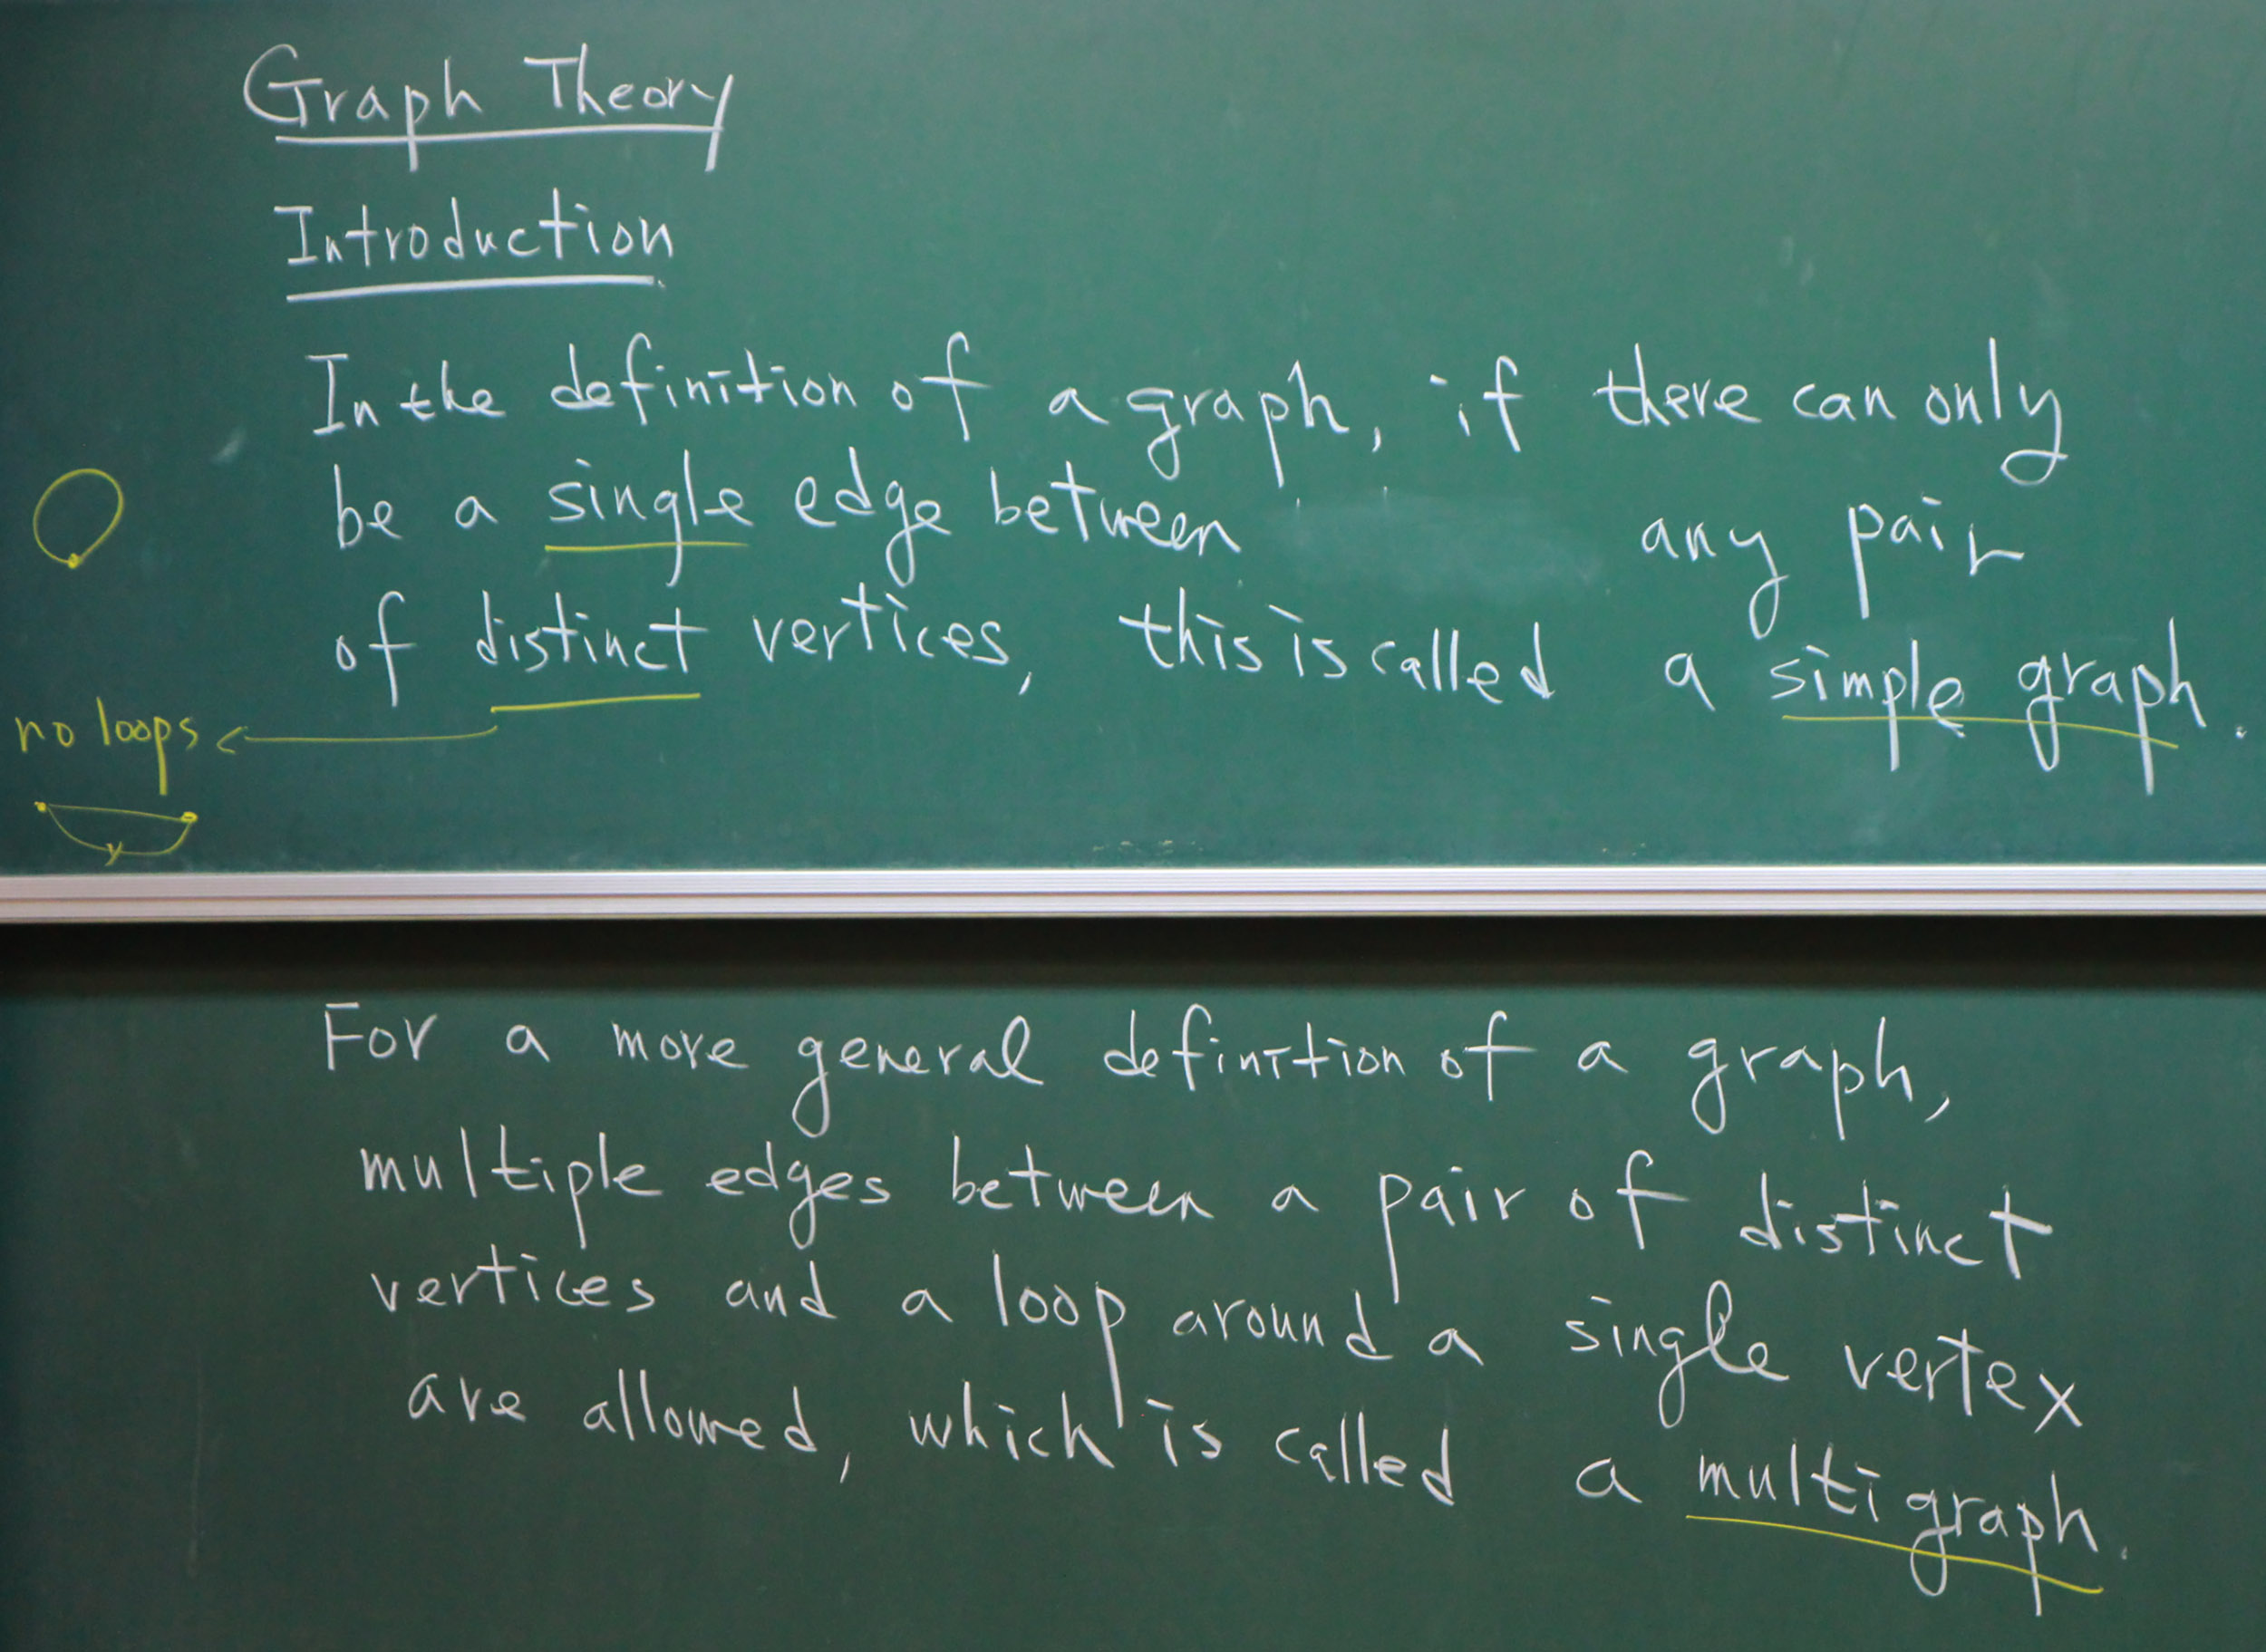 Graph Theory
Introduction
In the definition of a graph, if there can only
be a single edge between any pair
of distinct vertices, this is called a simple graph.
no loops
For a more general definition of a graph,
multiple edges between a pair of distinct
vertices and a loop around a single vertex
are allowed, which is called a multigraph.